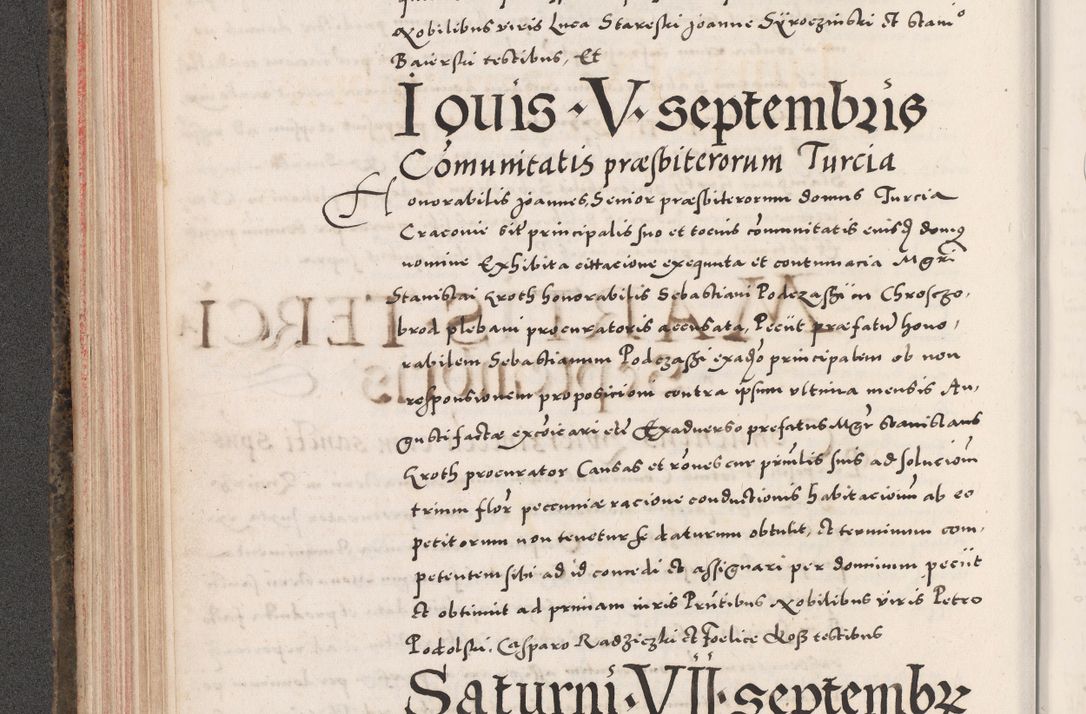 Nobilibus viris Luca Stareski Joanne Syroczinski et Stanio
Baierski testibus, Et
Iovis · V · septembris
Comunitatis præsbiterorum Turcia
Honorabilis Joannes, Senior præsbiterorum domus Turcia
Cracovie sitæ principalis suo et tocius comunitatis eiusdem domus
nomine Exhibita cittacione exequuta et contumacia Mgri
Stanislai Kroth honorabilis Sebastiani Podczaski in Chrosczo,
brod plebani procuratoris accusata, Peciit præfatum hono,
rabilem Sebastianum Podczaski ex adverso principalem ob non
responsionem proposicioni contra ipsum ultima mensis Au,
gusti factæ excoicari etc Exadverso prefatus Mgr Stanislaus
Kroth procurator Causas et rones cur prinlis suis ad solucionem
trium flor peccuniæ racione conductionis habitacionum ab eo
petitorum non tenetur se daturum obtulit, et terminum com,
petentem sibi ad id concedi et assignari per dominum peciit
et obtinuit ad primam iuris Prntibus Nobilibus viris Petro
Podolski, Casparo Radziczki et Foelice Kosz testibus
Saturni · VII · septembr